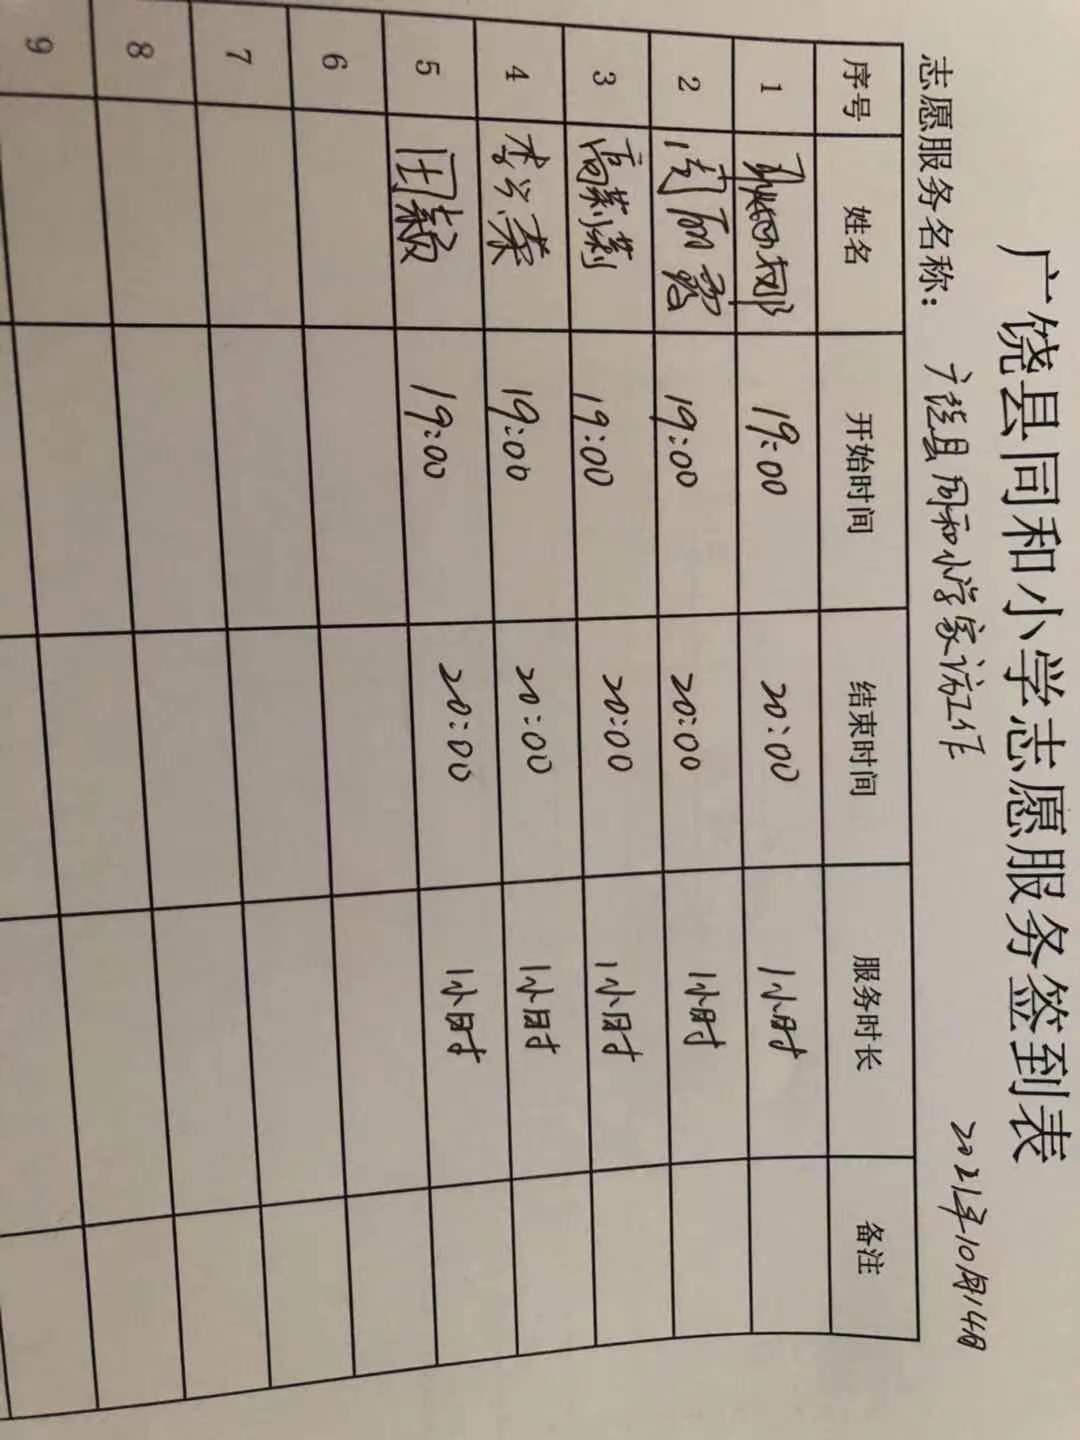 广饶县同和小学志愿服务签到表
志愿服务名称: 广饶县同和小学家访工作 2021年10月14日
序号 姓名 开始时间 结束时间 服务时长 备注
1 19:00 20:00 1小时
2 19:00 20:00 1小时
3 高莉莉 19:00 20:00 1小时
4 李兴荣 19:00 20:00 1小时
5 颖 19:00 20:00 1小时
6
7
8
9